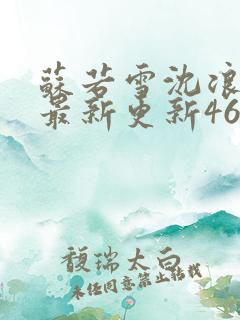 苏若雪沈浪
最新更新46
馥瑞太白
未经同意禁止转载